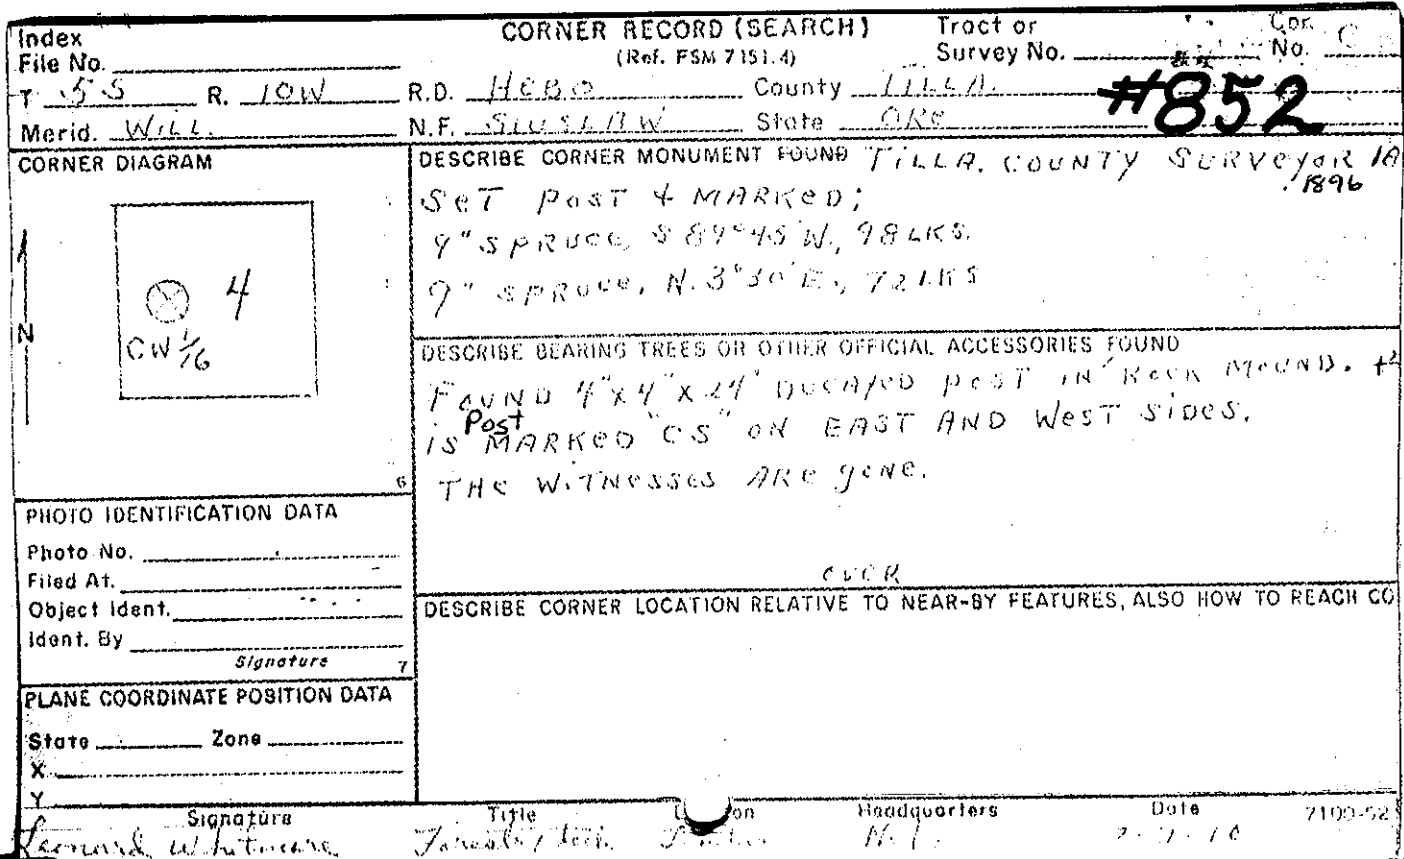 CORNER RECORD (SEARCH)
(Ref. FSM 7151.4)
Index
File No.
Tract or
Survey No.
Cor.
No. C
T 5S R. 10W R.D. HEBO County TILLA.
#852
Merid. WILL. N.F. SIUSLAW State ORE
CORNER DIAGRAM
N
4
CW 1/16
6
DESCRIBE CORNER MONUMENT FOUND TILLA. COUNTY SURVEYOR
1896
SET POST & MARKED;
9" SPRUCE, S 89°45 W., 98 LKS.
9" SPRUCE, N. 3°30 E., 72 LKS
DESCRIBE BEARING TREES OR OTHER OFFICIAL ACCESSORIES FOUND
FOUND 4"x4"x24" DECAYED POST IN ROCK MOUND.
Post
IS MARKED "CS" ON EAST AND WEST SIDES.
THE WITNESSES ARE gONE.
OVER
PHOTO IDENTIFICATION DATA
Photo No.
Filed At.
Object Ident.
Ident. By
Signature
7
DESCRIBE CORNER LOCATION RELATIVE TO NEAR-BY FEATURES, ALSO HOW TO REACH CO
PLANE COORDINATE POSITION DATA
State Zone
X
Y
Signature Title Headquarters Date 7100-52
Leonard Whitmore